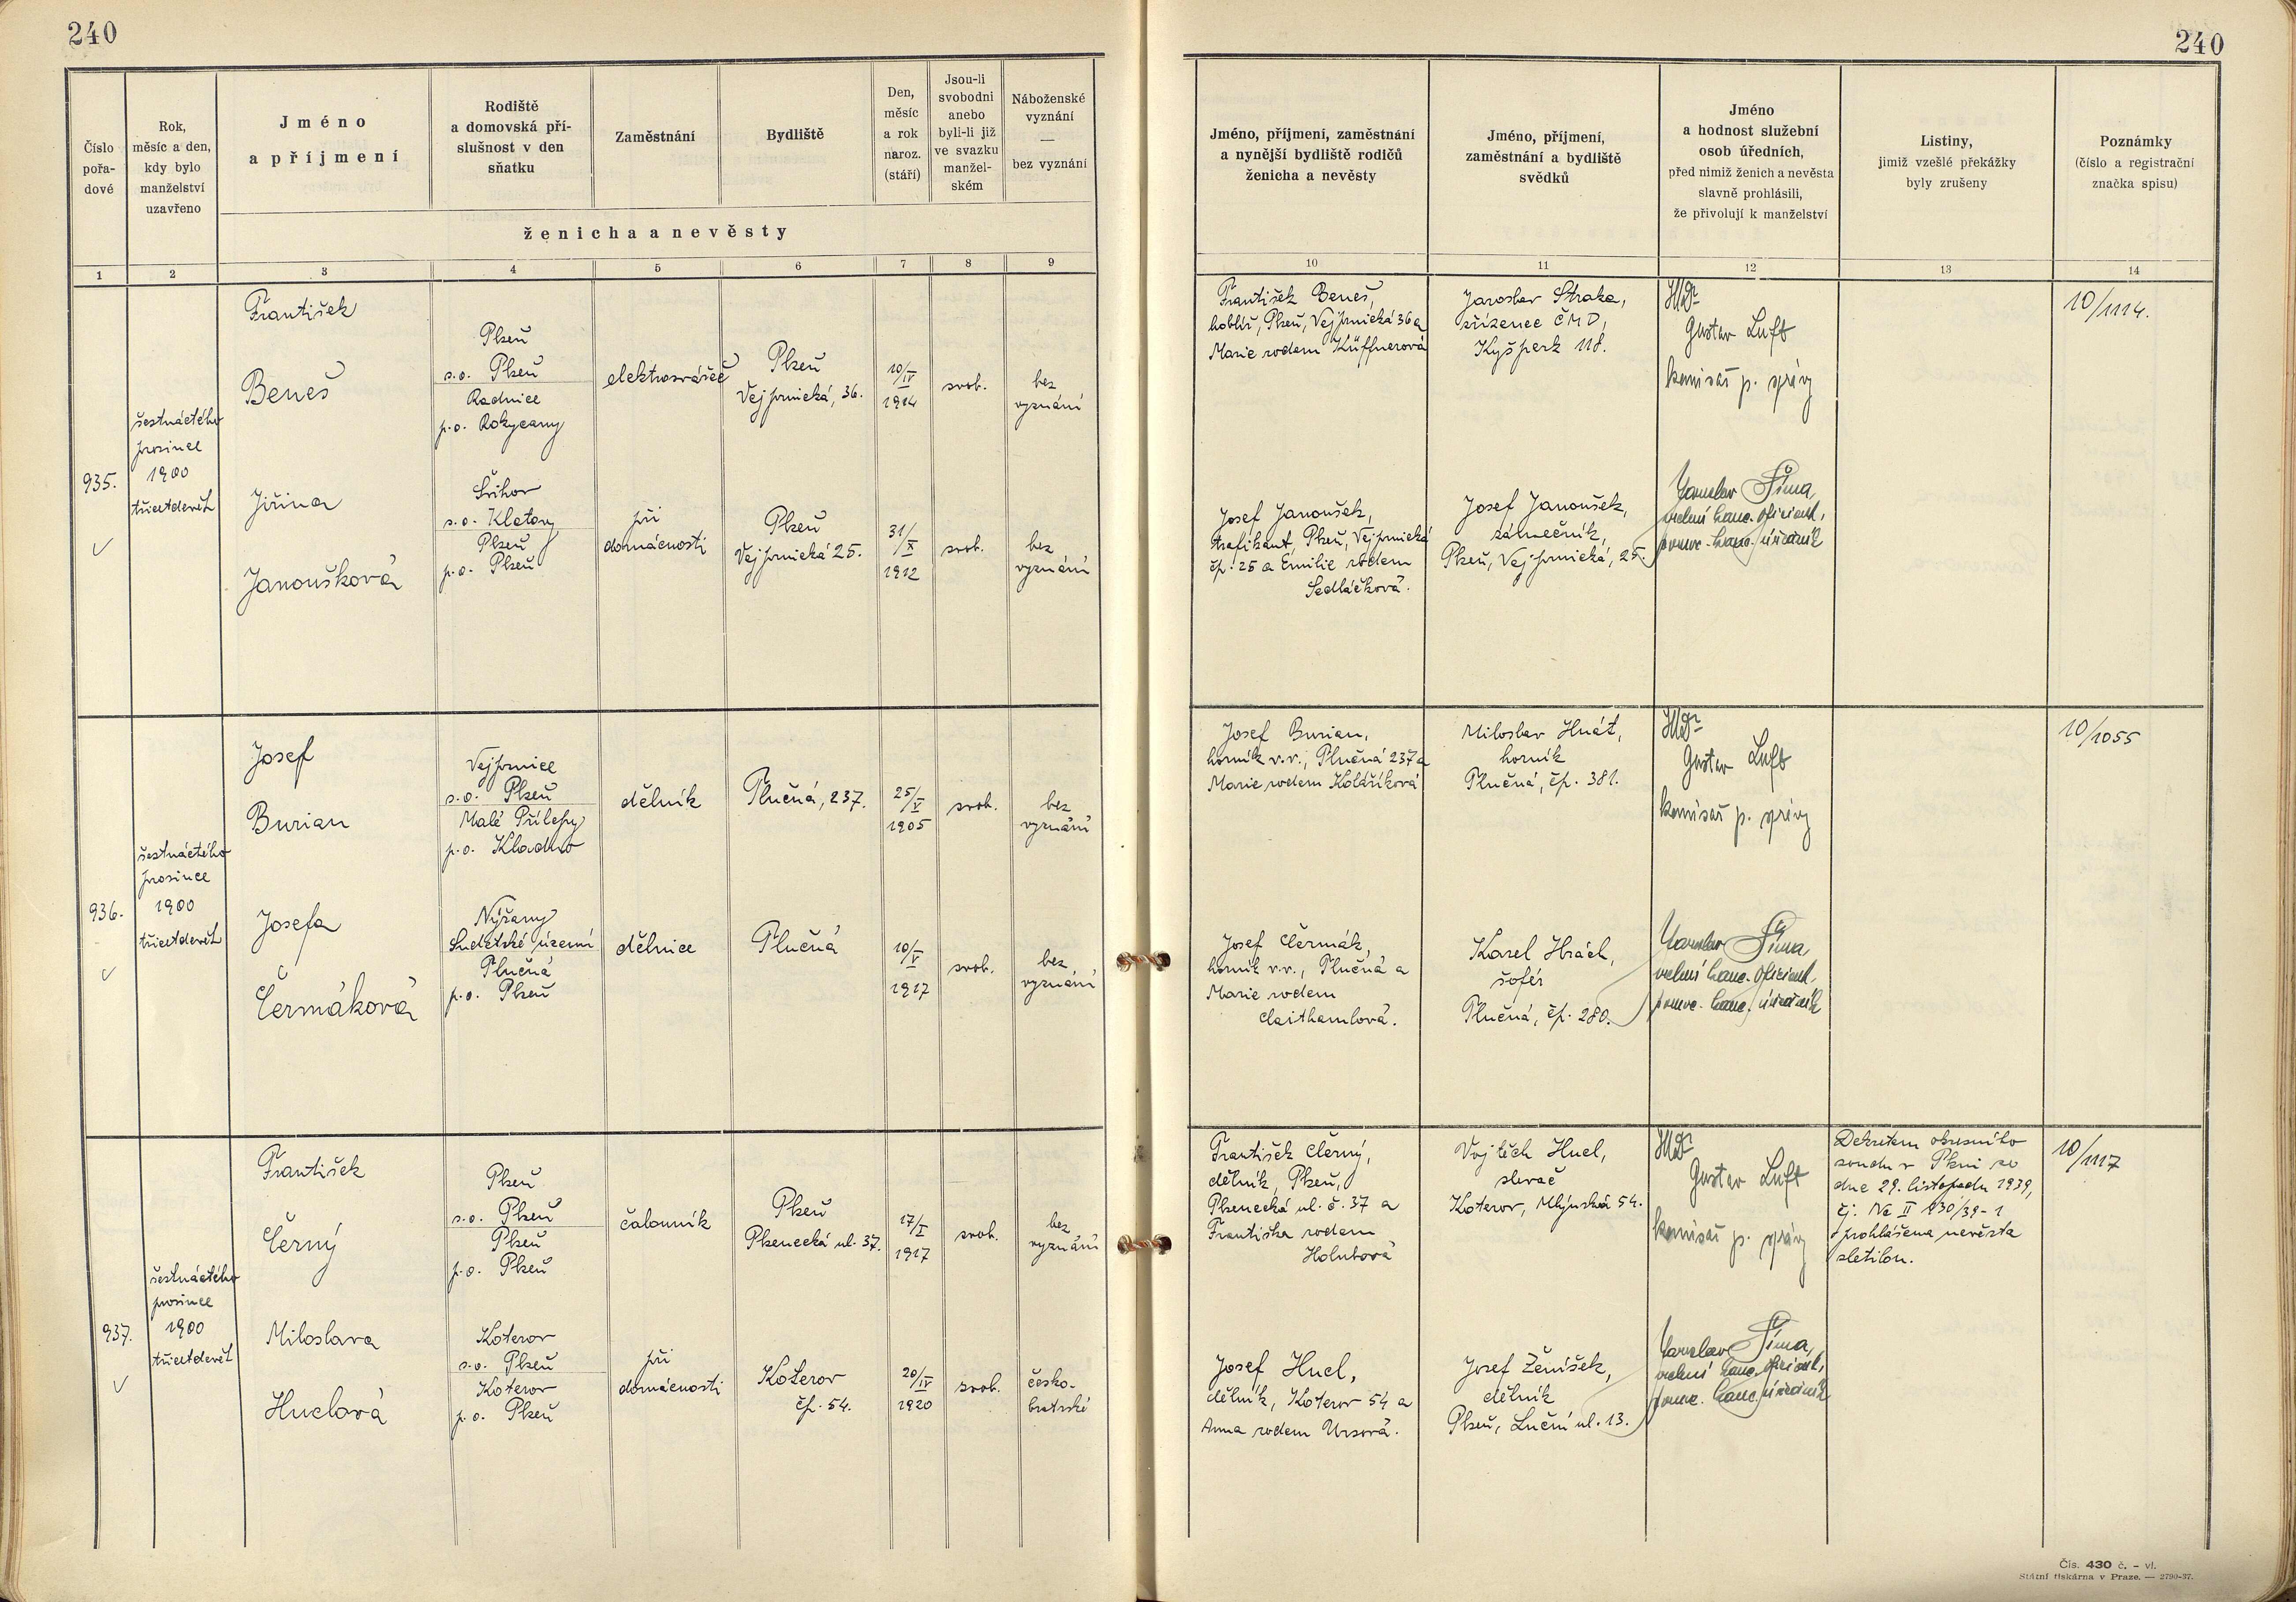 240
240
Číslo
pořa-
dové
Rok,
měsíc a den,
kdy bylo
manželství
uzavřeno
Jméno
a příjmení
Rodiště
a domovská pří-
slušnost v den
sňatku
Zaměstnání
Bydliště
Den,
měsíc
a rok
naroz.
(stáří)
Jsou-li
svobodni
anebo
byli-li již
ve svazku
manžel-
ském
Náboženské
vyznání
—
bez vyznání
ženicha a nevěsty
Jméno, příjmení, zaměstnání
a nynější bydliště rodičů
ženicha a nevěsty
Jméno, příjmení,
zaměstnání a bydliště
svědků
Jméno
a hodnost služební
osob úředních,
před nimiž ženich a nevěsta
slavně prohlásili,
že přivolují k manželství
Listiny,
jimiž vzešlé překážky
byly zrušeny
Poznámky
(číslo a registrační
značka spisu)
1 2 3 4 5 6 7 8 9 10 11 12 13 14
935.
šestnáctého
prosince
1900
třicetdevět
František
Beneš
Plzeň
s.o. Plzeň
Radnice
p.o. Rokycany
elektrosvářeč
Plzeň
Vejprnická, 36.
10/IV
1914
svob.
bez
vyznání
Jiřina
Janoušková
Svihov
s.o. Klatovy
Plzeň
p.o. Plzeň
při
domácnosti
Plzeň
Vejprnická 25.
31/X
1912
svob.
bez
vyznání
František Beneš,
hoblíř, Plzeň, Vejprnická 36 a
Marie rodem Küffnerová
Josef Janoušek,
trafikant, Plzeň, Vejprnická
čp. 25 a Emilie rodem
Sedláčková.
Jaroslav Straka,
zřízenec ČMD,
Kyšperk 118.
Josef Janoušek,
zámečník,
Plzeň, Vejprnická, 25.
Gustav Luft
komisař p. správy
Jaroslav Šíma,
kanc. oficiant,
pomoc. kanc. úředník
10/1114.
936.
šestnáctého
prosince
1900
třicetdevět
Josef
Burian
Vejprnice
s.o. Plzeň
Malé Přílepy
p.o. Kladno
dělník
Tlučná, 237.
25/V
1905
svob.
bez
vyznání
Josefa
Čermáková
Nýřany
Sudetské území
Tlučná
p.o. Plzeň
dělnice
Tlučná
10/V
1917
svob.
bez
vyznání
Josef Burian,
horník v.v., Tlučná 237 a
Marie rodem Kolaříková
Josef Čermák,
horník v.v., Tlučná a
Marie rodem
Claithamlová.
Miloslav Hnát,
horník
Tlučná, čp. 381.
Karel Hrách,
šofér
Tlučná, čp. 280.
Gustav Luft
komisař p. správy
Jaroslav Šíma
kanc. oficiant,
pomoc. kanc. úředník
10/1055
937.
šestnáctého
prosince
1900
třicetdevět
František
Černý
Plzeň
s.o. Plzeň
Plzeň
p.o. Plzeň
čalouník
Plzeň
Plzenecká ul. 37.
17/I
1917
svob.
bez
vyznání
Miloslava
Huclová
Koterov
s.o. Plzeň
Koterov
p.o. Plzeň
při
domácnosti
Koterov
čp. 54.
20/IV
1920
svob.
česko-
bratrské
František Černý,
dělník, Plzeň,
Plzenecká ul. č. 37 a
Františka rodem
Holubová
Josef Hucl,
dělník, Koterov 54 a
Anna rodem Ursová.
Vojtěch Hucl,
slevač
Koterov, Mlýnská 54.
Josef Ženíšek,
dělník
Plzeň, Luční ul. 13.
Gustav Luft
komisař p. správy
Jaroslav Šíma,
kanc. oficiant,
pomoc. kanc. úředník
Dekretem okresního
soudu v Plzni ze
dne 29. listopadu 1939,
čj. Nc II 930/39-1
prohlášena nevěsta
zletilou.
10/1117
Čís. 430 č. – vl.
Státní tiskárna v Praze. — 2790-37.